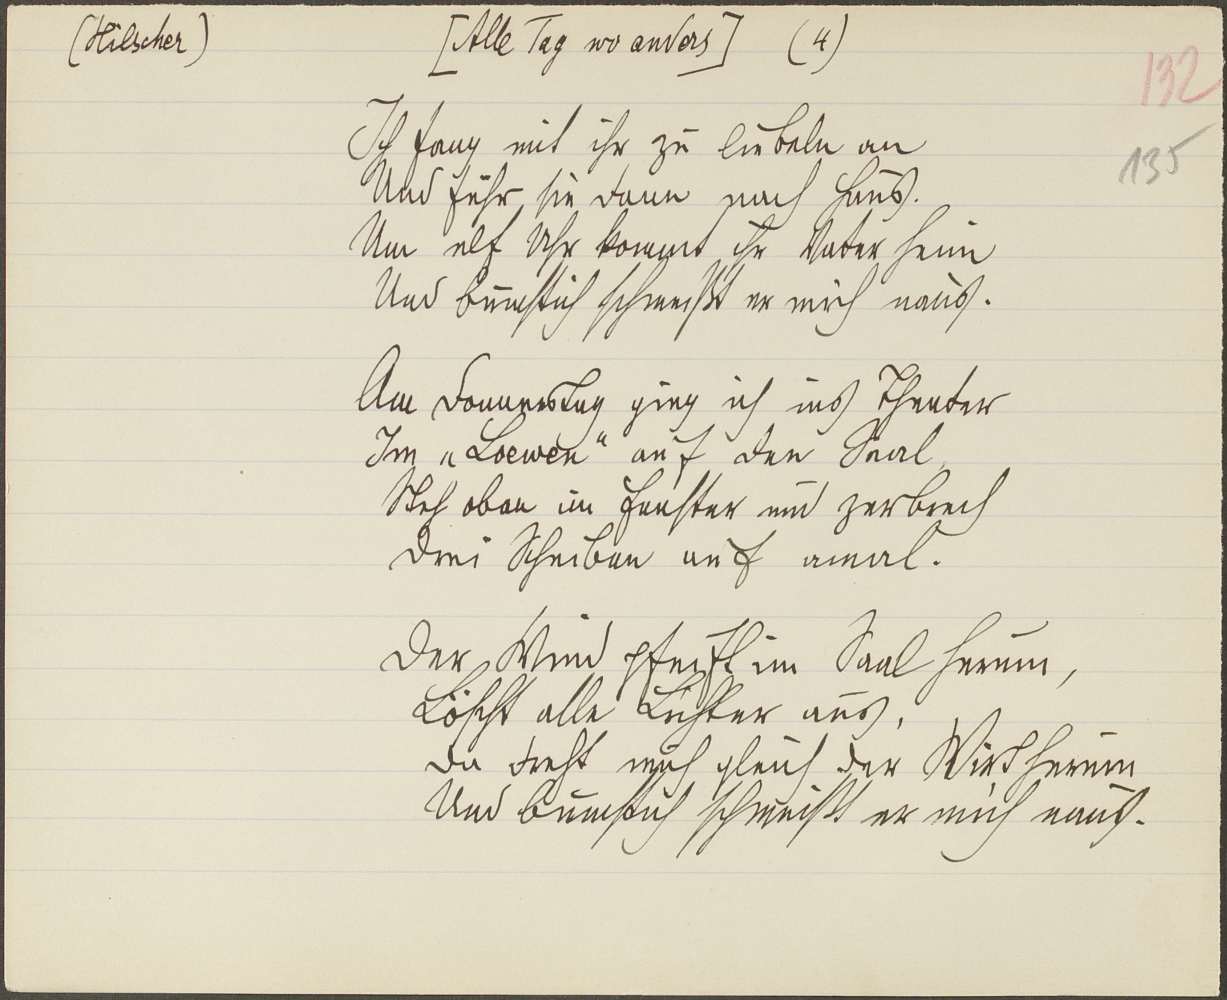 (Hilscher) [Alle Tag wo anders] (4)
132
135
Ich fang mit ihr zu liebeln an
Und führ sie dann nach Haus.
Um elf Uhr kommt ihr Vater heim
Und bumstich schmeißt er mich naus.
Am Donnerstag gieng ich ins Theater
Im „Loewen" auf den Saal,
Steh oben im Fenster und zerbrech
Drei Scheiben auf amal.
Der Wind pfeift im Saal herum,
Löscht alle Lichter aus,
Da dreht mich gleich der Wirt herum
Und bumstich schmeißt er mich naus.